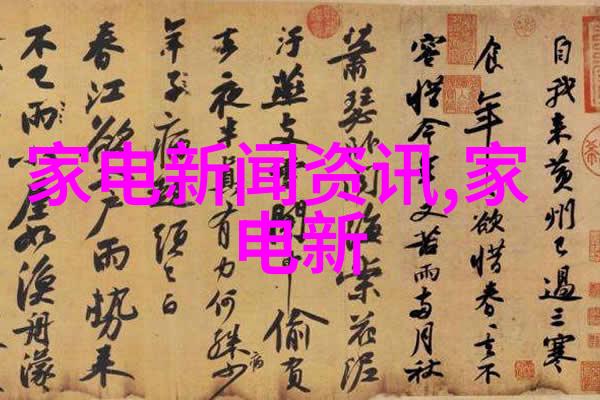 家电新闻资讯,家
电新
自我来黄州已過三寒
食年欲惜春去不
容惜今年又苦雨兩月秋
蕭瑟卧聞海棠花泥
汙燕支雪闇中偷負
去夜半真有力何殊少
病
年子病起頭已白
春江欲入户雨勢来
不已雨小屋如漁舟濛